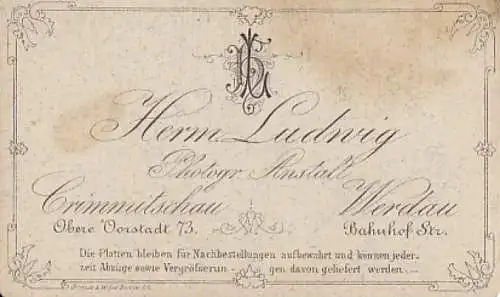 HL
Herm. Ludwig
Photogr. Anstalt
Crimmitschau Werdau
Obere Vorstadt 73. Bahnhof Str.
Die Platten bleiben für Nachbestellungen aufbewahrt und können jeder-
zeit Abzüge sowie Vergrößerun- gen davon geliefert werden.